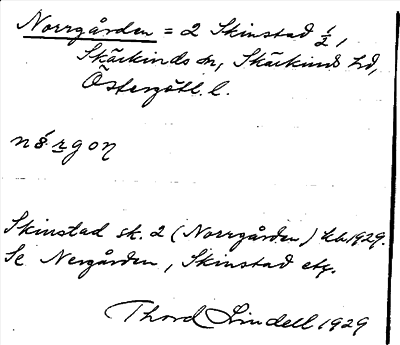 Norrgården = 2 Skinstad 1/2,
Skärkinds sn, Skärkinds hd,
Östergötl. l.
Skinstad sk. 2 (Norrgården) kb. 1929.
Se Nergården, Skinstad etc.
Thord Lindell 1929